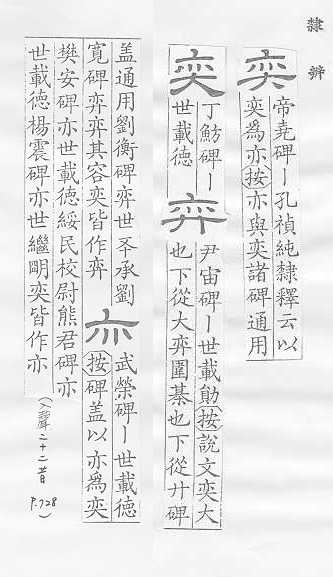 隸辨
奕 帝堯碑〡孔禎純隸釋云以
奕爲亦按亦與奕諸碑通用
奕 丁魴碑〡
世載德
弈 尹宙碑〡世載勛按說文奕大
也下從大弈圍棊也下從廾碑
盖通用劉衡碑弈世丕承劉
寬碑弈弈其容奕皆作弈
亦 武榮碑〡世載德
按碑盖以亦爲奕
樊安碑亦世載德綏民校尉熊君碑亦
世載德楊震碑亦世繼朙奕皆作亦
(入聲二十二昔 P.728)